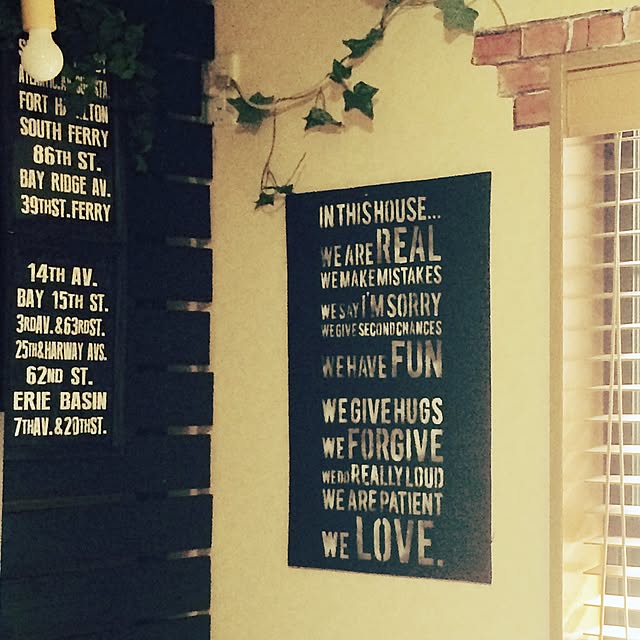 ST.
FORT
SOUTH FERRY
86TH ST.
BAY RIDGE AV.
39THST.FERRY
14TH AV.
BAY 15TH ST.
3RDAV.&63RDST.
25TH&HARWAY AVS.
62ND ST.
ERIE BASIN
7THAV.&20THST.
IN THIS HOUSE...
WE ARE REAL
WE MAKE MISTAKES
WE SAY I'M SORRY
WE GIVE SECOND CHANCES
WE HAVE FUN
WE GIVE HUGS
WE FORGIVE
WE DO REALLY LOUD
WE ARE PATIENT
WE LOVE.